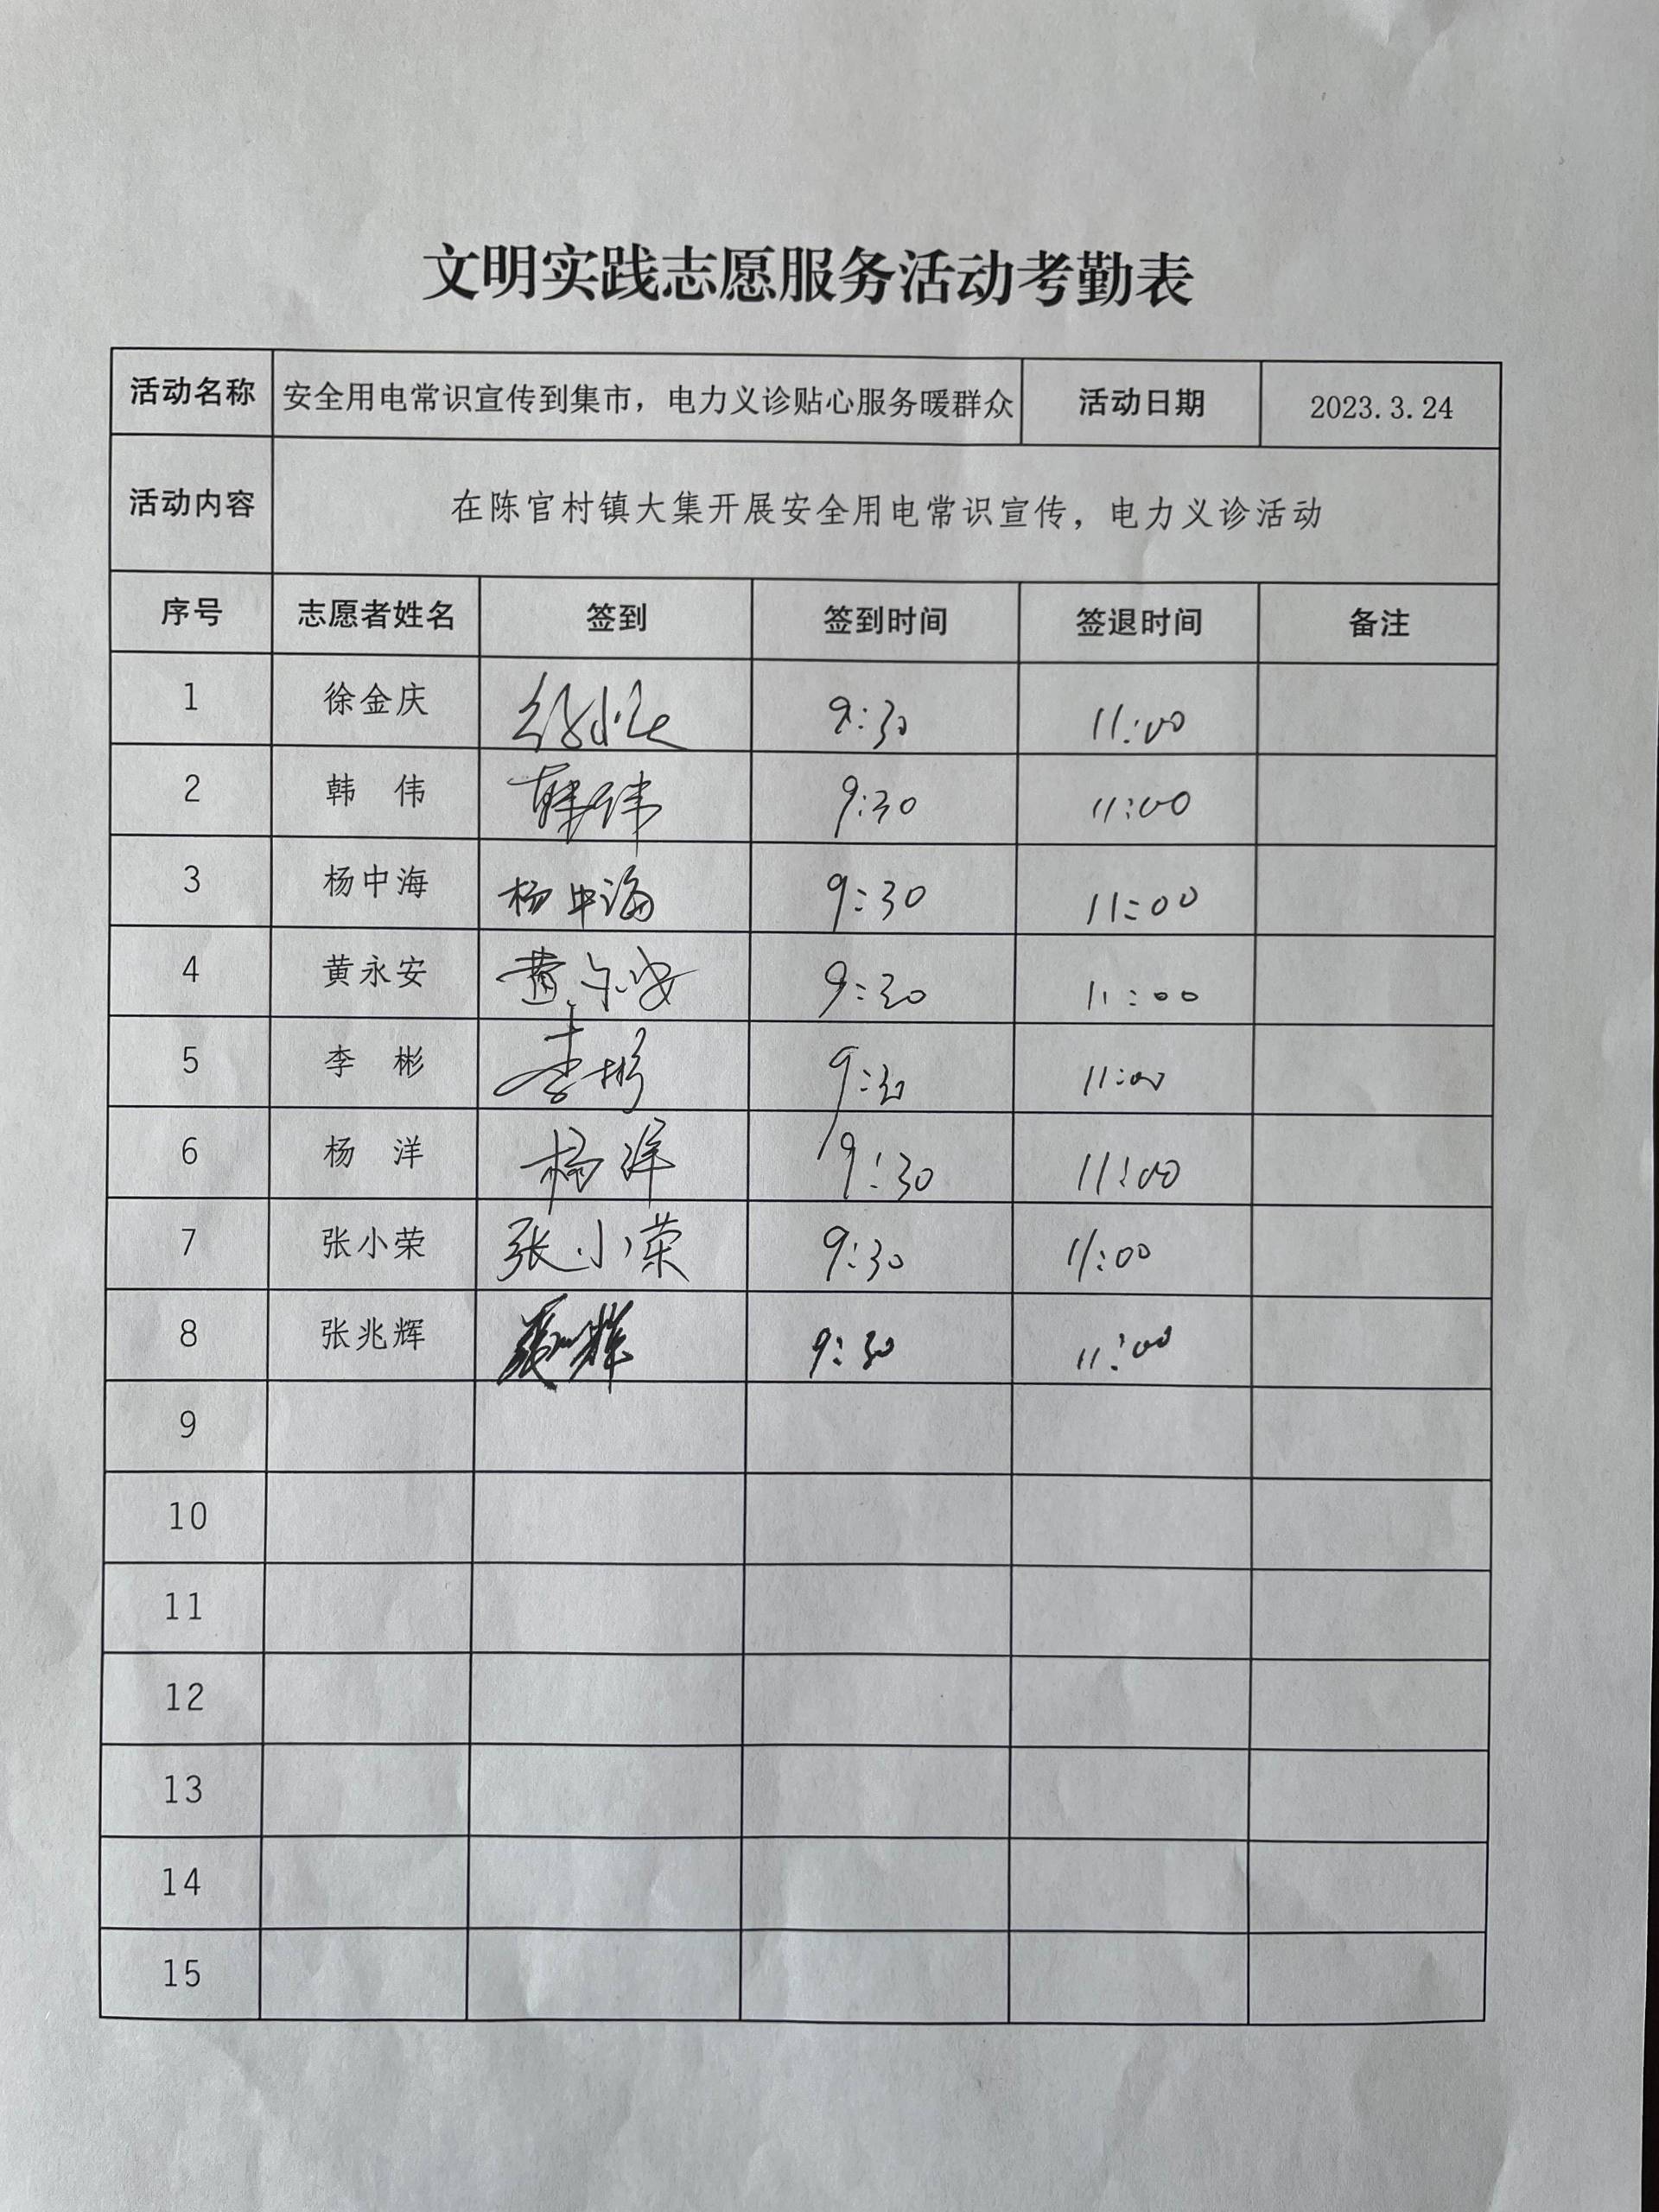 文明实践志愿服务活动考勤表
活动名称 安全用电常识宣传到集市，电力义诊贴心服务暖群众 活动日期 2023.3.24
活动内容 在陈官村镇大集开展安全用电常识宣传，电力义诊活动
序号 志愿者姓名 签到 签到时间 签退时间 备注
1 徐金庆 9:30 11:00
2 韩 伟 韩伟 9:30 11:00
3 杨中海 杨中海 9:30 11:00
4 黄永安 黄永安 9:30 11:00
5 李 彬 李彬 9:30 11:00
6 杨 洋 杨洋 9:30 11:00
7 张小荣 张小荣 9:30 11:00
8 张兆辉 张兆辉 9:30 11:00
9
10
11
12
13
14
15